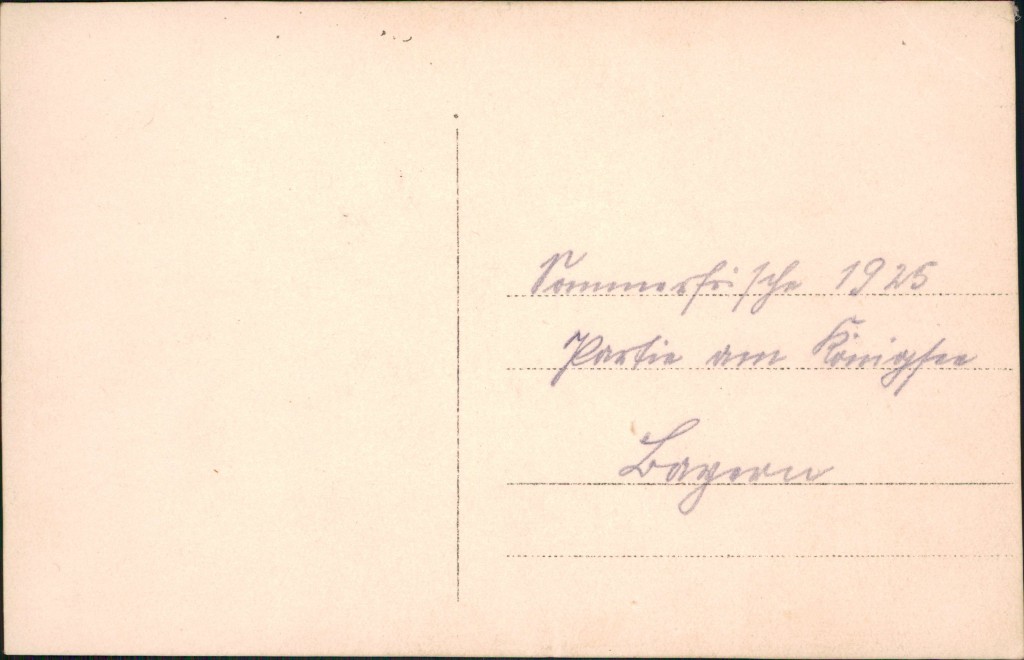 Sommerfrische 1925
Partie am Königsee
Bayern